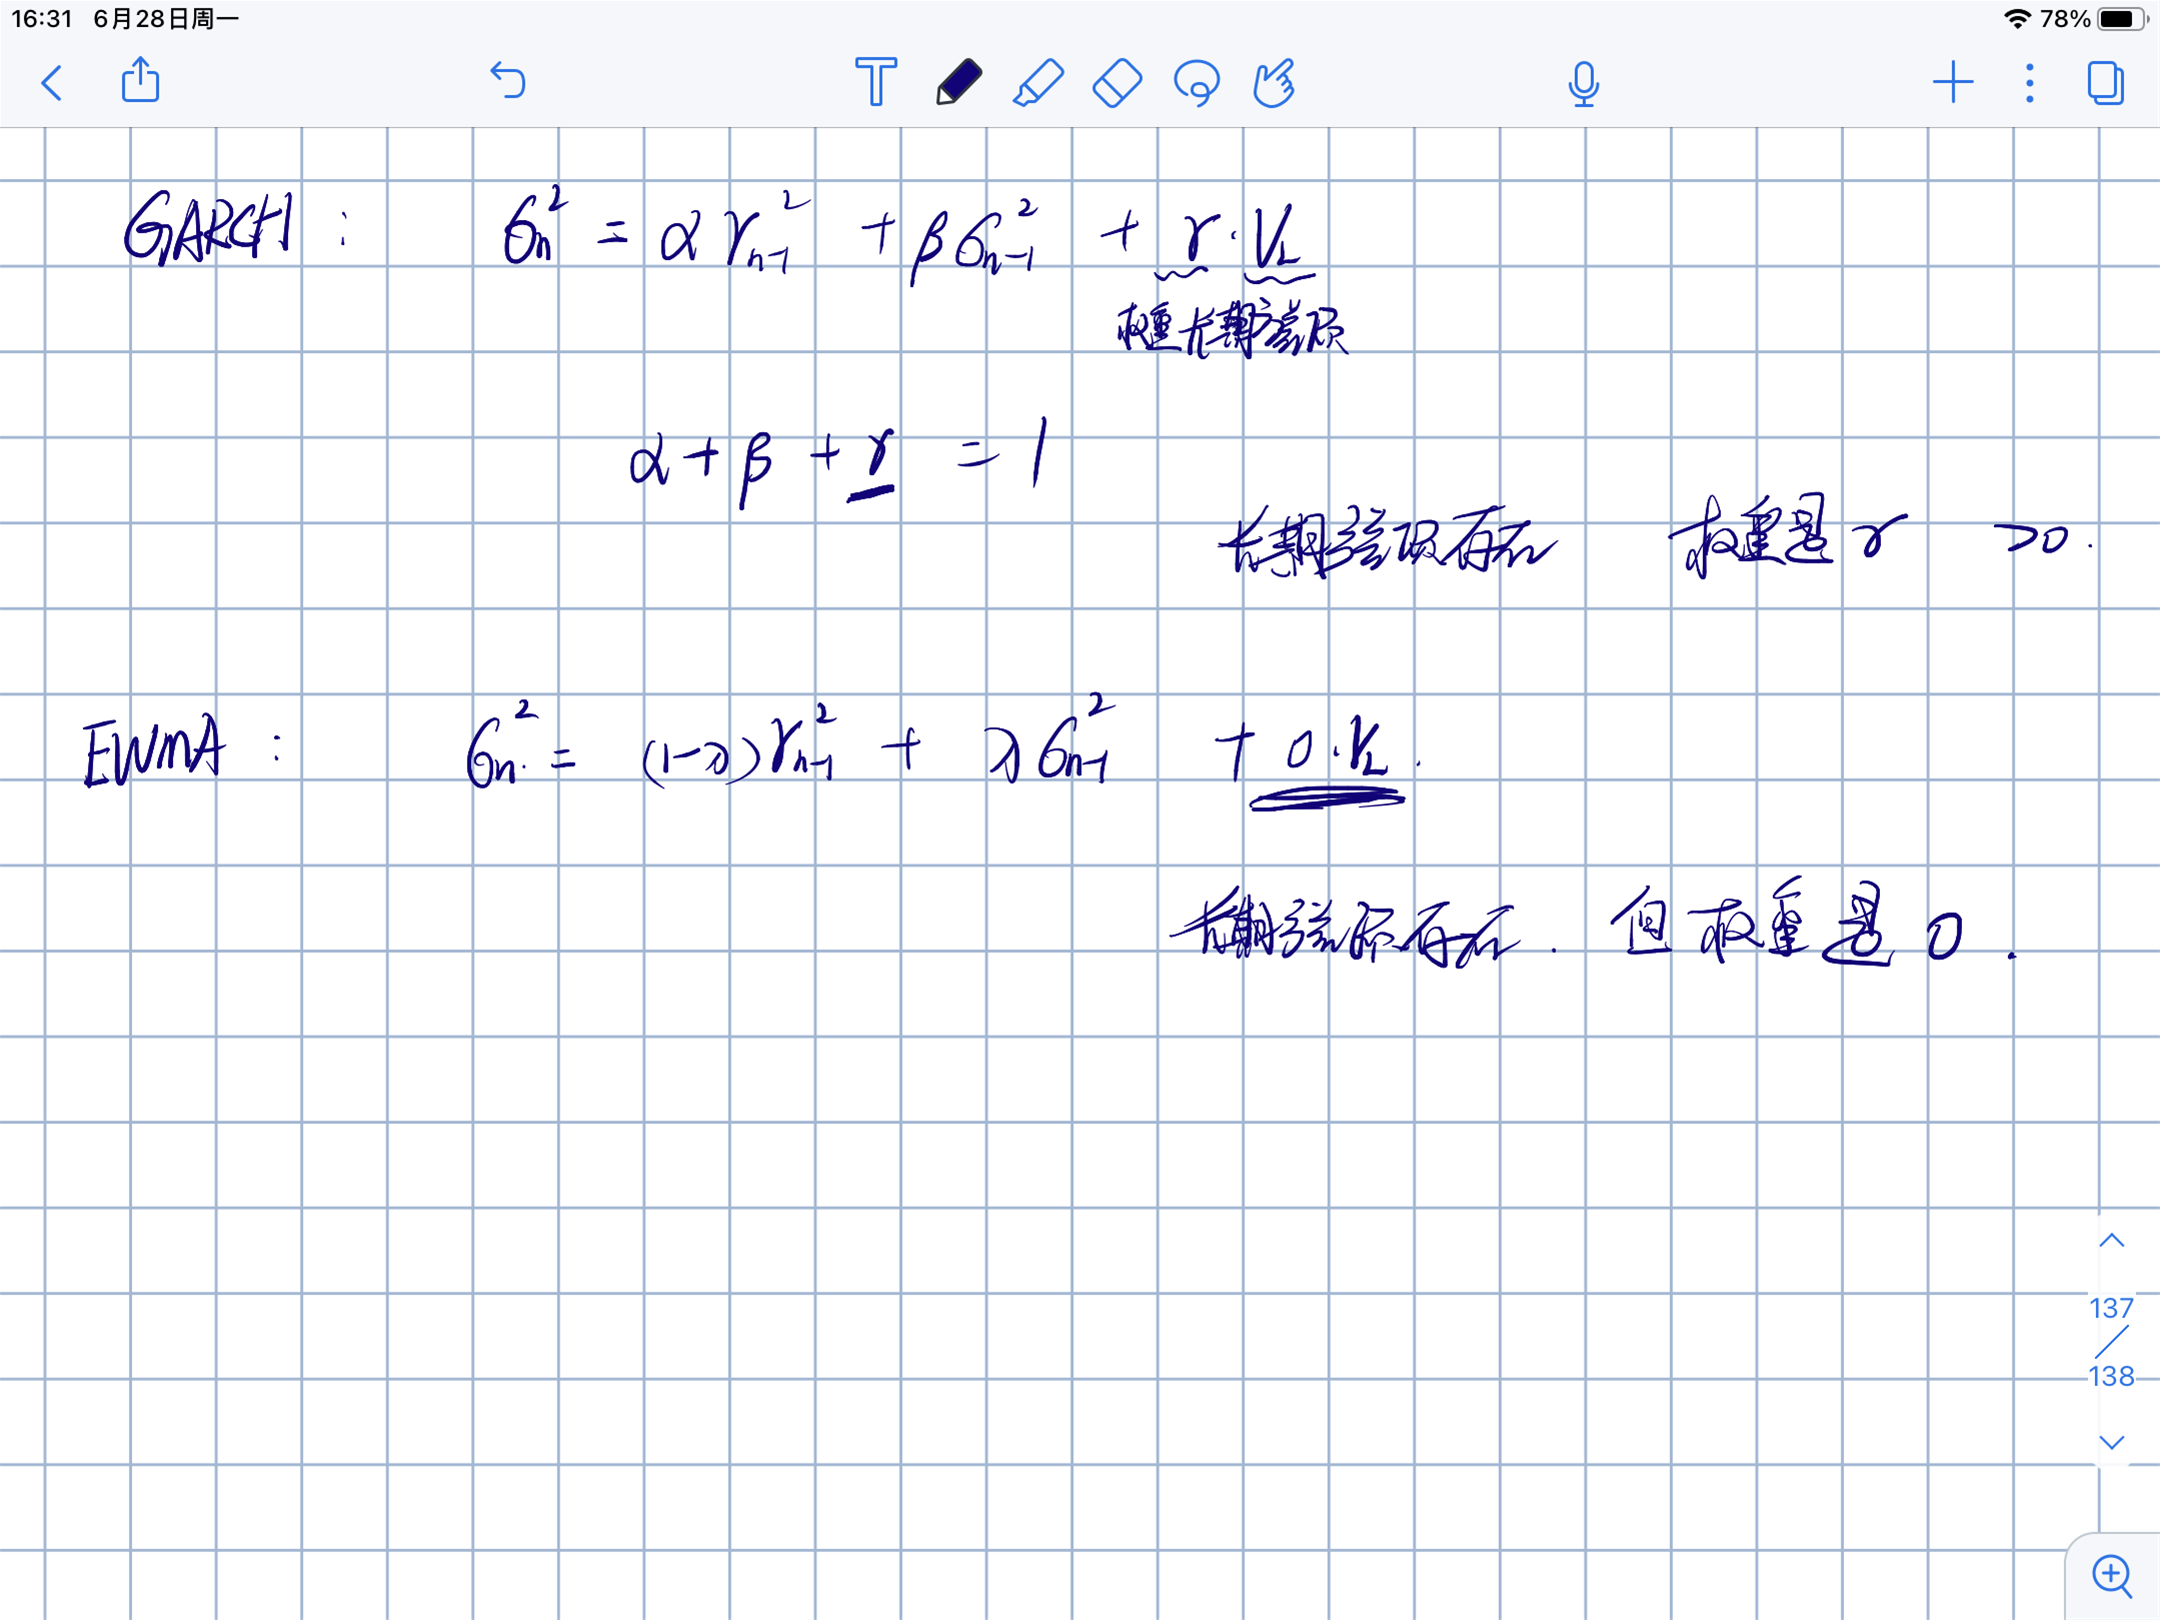 16:31 6月28日周一 78%
T
GARCH : σn² = α rn-1² + β σn-1² + γ · VL
权重 长期方差
α + β + γ = 1
长期方差存在 权重是 γ >0.
EWMA : σn² = (1-λ) rn-1² + λ σn-1² + 0 · VL .
长期方差存在. 但权重是 0 .
137
138